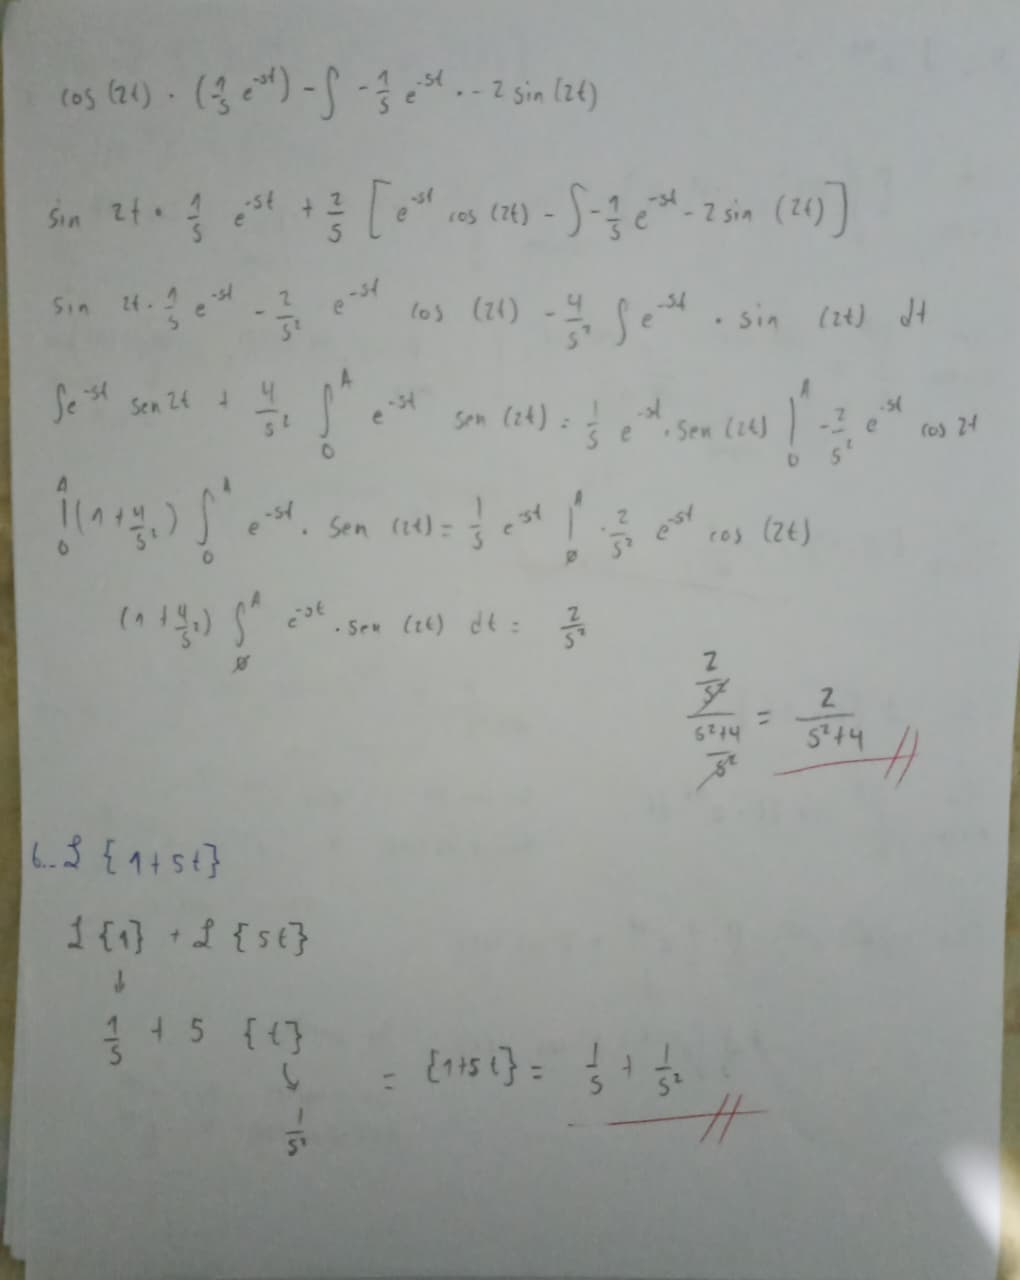 cos (2t) · (1/s e^-st) - ∫ - 1/s e^-st · - 2 sin (2t)
sin 2t · 1/s e^-st + 2/s [ e^-st cos (2t) - ∫ - 1/s e^-st - 2 sin (2t) ]
sin 2t · 1/s e^-st - 2/s² e^-st cos (2t) - 4/s² ∫ e^-st · sin (2t) dt
∫ e^-st sen 2t + 4/s² ∫_0^A e^-st sen (2t) = 1/s e^-st · sen (2t) |_0^A - 2/s² e^-st cos 2t
|_0^A (1 + 4/s²) ∫_0^A e^-st · sen (2t) = 1/s e^-st |_0^A · 2/s² e^-st cos (2t)
(1 + 4/s²) ∫_0^A e^-st · sen (2t) dt = 2/s²
(2/s²)/((s²+4)/s²) = 2/(s²+4) //
6.- ℒ {1+5t}
ℒ {1} + ℒ {5t}
↓
1/s + 5 {t}
↓
1/s²
= {1+5t} = 1/s + 1/s² //